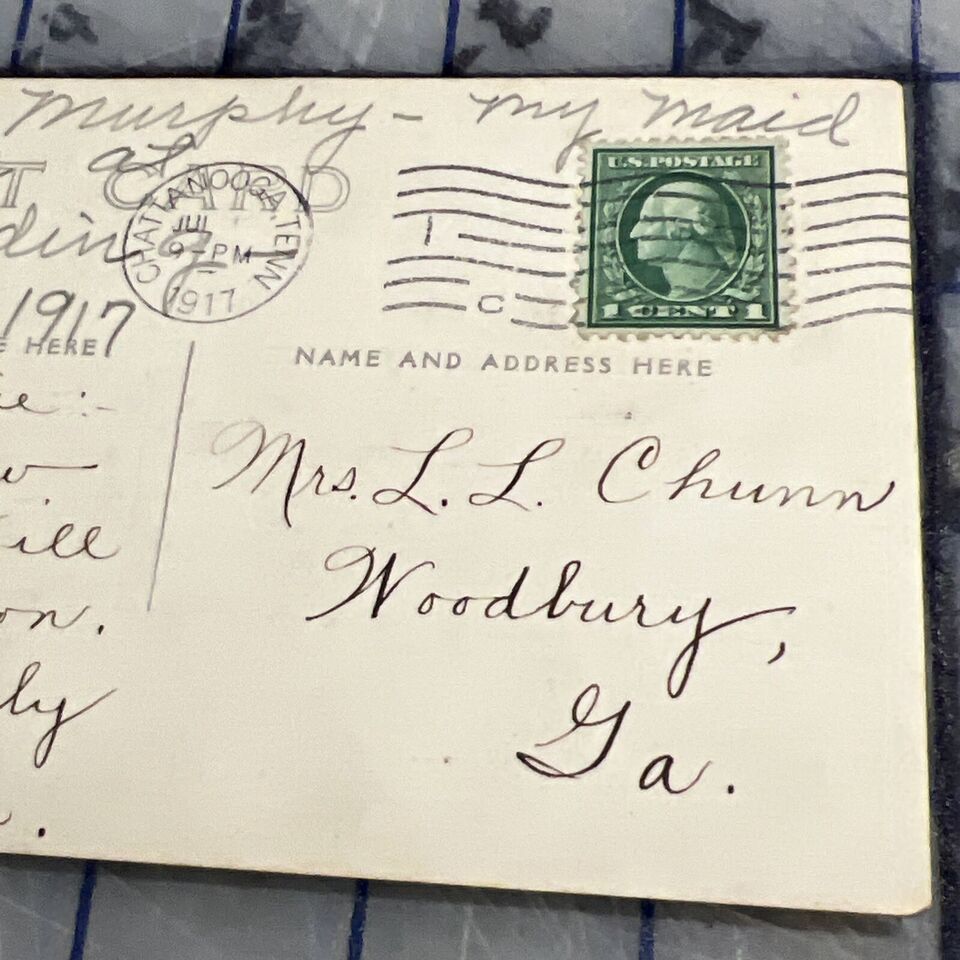 Murphy - my maid
at
T CARD
ding
1917
CHATTANOOGA, TENN
JUL
9-PM
1917
1
C
U.S. POSTAGE
1 CENT 1
E HERE
NAME AND ADDRESS HERE
Mrs. L. L. Chunn
Woodbury,
Ga.
ie :-
w.
ill
on.
ly